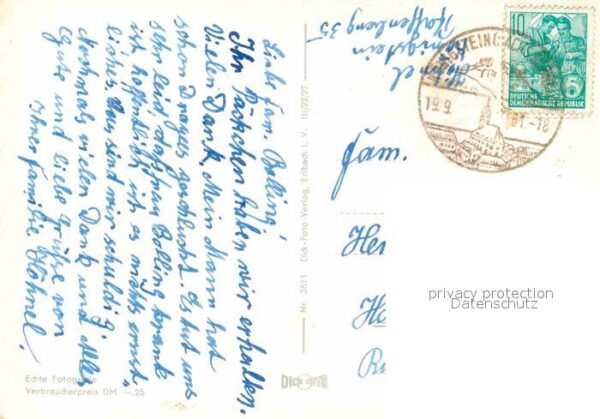 Liebe Fam. Bolling!
Ihr Päckchen haben wir erhalten.
Vielen Dank. Mein Mann hat
schon Drages geschluckt. Es tut uns
sehr leid, daß Frau Bolling krank
ist, hoffentlich ist es nichts ernst
liches. Bony sind wir schuldig.
Nochmals vielen Dank und alles
Gute und liebe Grüße von
Ihrer Familie Hähnel.
Echte Fotografie
Verbraucherpreis DM —.25
Nr. 3511 Dick-Foto-Verlag, Erlbach i. V. III/23/27
DICK FOTO
Hähnel
Königstein
Pfaffenberg 35
19.9. 61.-18
10
DEUTSCHE
DEMOKRATISCHE REPUBLIK
Fam.
privacy protection
Datenschutz